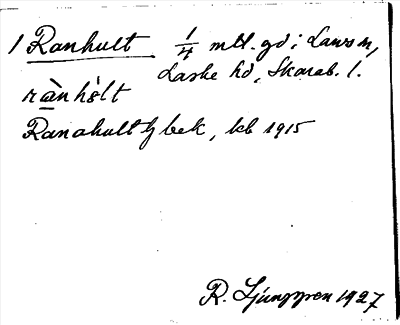 1 Ranhult 1/4 mtl. gd i Lavs sn,
Laske hd, Skarab. l.
rànhòlt
Ranahult bek, kb 1915
R. Ljunggren 1927